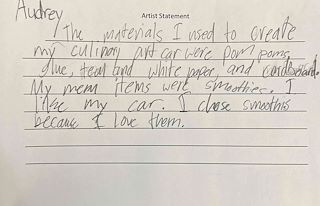 Audrey
Artist Statement
The materials I used to create
my culinary art car were pom poms,
glue, and white paper, and cardboard.
My menu items were smoothies. I
like my car. I chose smoothis
because I love them.